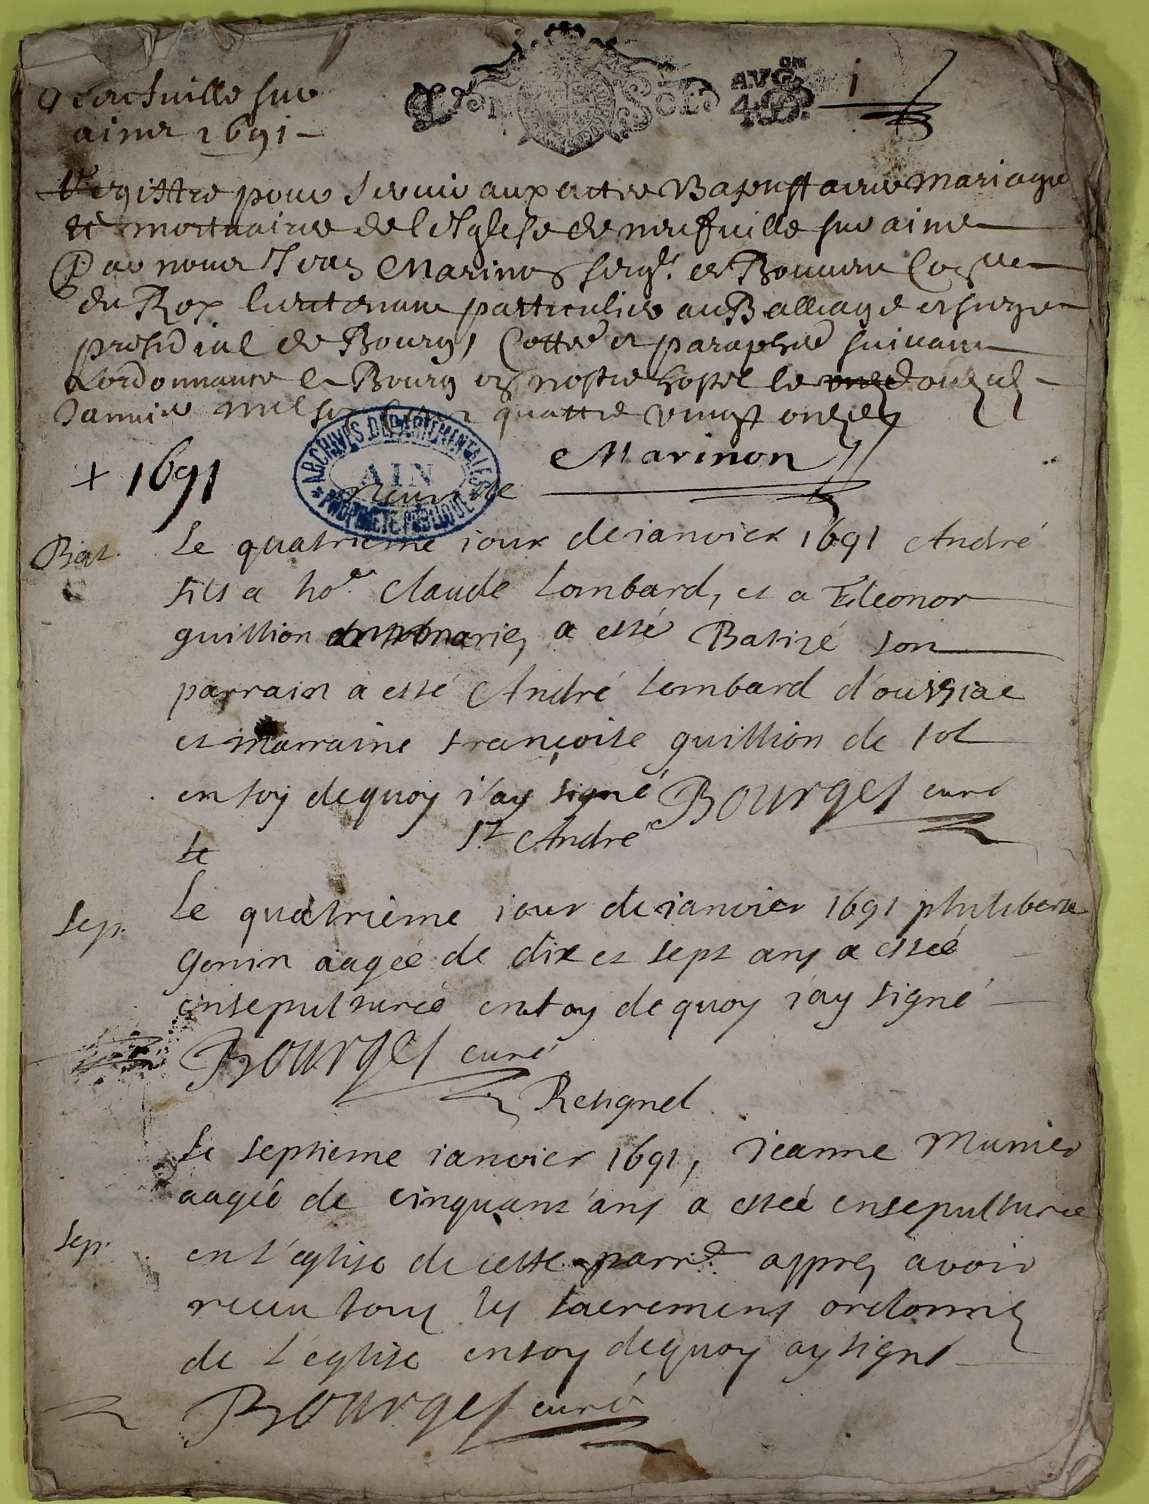 neufville sur
ainz 1691
AVG ON
SOLS
i
Registre pour servir aux actes Baptistaires mariages
et mortuaires de l'Esglise de neufville sur ains
Par nous Jean Marinon
du Roy lieutenant particulier au Balliage et siege
presidial de Bourg, Cotté et paraphé suivant
Lordonnance a Bourg en nostre hostel le douze
Janvier mil six cent quattre vingt onze
Marinon
+ 1691
ARCHIVES DÉPARTEMENTALES
AIN
PROPRIÉTÉ PUBLIQUE
Bat.
Le quatrieme iour de ianvier 1691 André
fils a ho.e Claude Lombard, et a Eleonor
guillion mariez a esté Batizé son
parrain a esté André Lombard d'oussiae
et marraine françoise guillion de sol
en foy dequoy i'ay signé Bourges curé
St André
Le
Sep.
Le quatrieme iour de ianvier 1691 philiberte
Genin aagée de dix et sept ans a estée
ensepulturée en foy de quoy i'ay signé
Bourges curé
Resignel
Le septieme ianvier 1691, Jeanne Munier
aagée de cinquant'ans a estée ensepulturée
Sep.
en l'eglise de cette parr.e apprez avoir
receu tous les sacremens ordonnez
de l'eglise en foy dequoy ay signé
Bourges curé